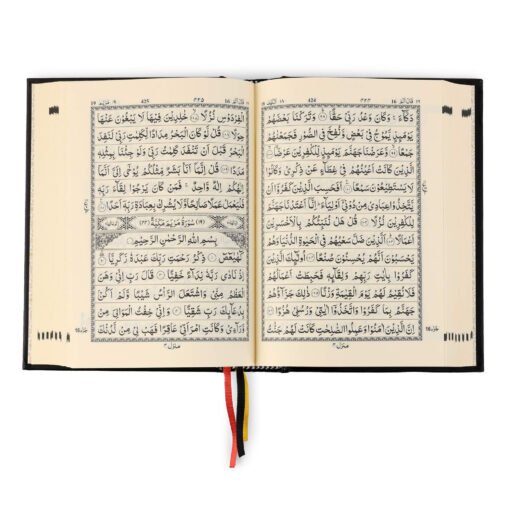 قال الم ١٦ ٣٢٣ 424 الكهف ١٨
دَكَّآءَ ۚ وَكَانَ وَعْدُ رَبِّىْ حَقًّا ۝ وَتَرَكْنَا بَعْضَهُمْ
يَوْمَئِذٍ يَّمُوْجُ فِىْ بَعْضٍ وَّنُفِخَ فِى الصُّوْرِ فَجَمَعْنٰهُمْ
جَمْعًا ۝ وَّعَرَضْنَا جَهَنَّمَ يَوْمَئِذٍ لِّلْكٰفِرِيْنَ عَرْضًا ۝
الَّذِيْنَ كَانَتْ اَعْيُنُهُمْ فِىْ غِطَآءٍ عَنْ ذِكْرِىْ وَكَانُوْا
لَا يَسْتَطِيْعُوْنَ سَمْعًا ۝ اَفَحَسِبَ الَّذِيْنَ كَفَرُوْٓا اَنْ
يَّتَّخِذُوْا عِبَادِىْ مِنْ دُوْنِىْٓ اَوْلِيَآءَ ؕ اِنَّآ اَعْتَدْنَا جَهَنَّمَ
لِلْكٰفِرِيْنَ نُزُلًا ۝ قُلْ هَلْ نُنَبِّئُكُمْ بِالْاَخْسَرِيْنَ
اَعْمَالًا ۝ اَلَّذِيْنَ ضَلَّ سَعْيُهُمْ فِى الْحَيٰوةِ الدُّنْيَا وَهُمْ
يَحْسَبُوْنَ اَنَّهُمْ يُحْسِنُوْنَ صُنْعًا ۝ اُولٰٓئِكَ الَّذِيْنَ
كَفَرُوْا بِاٰيٰتِ رَبِّهِمْ وَلِقَآئِهٖ فَحَبِطَتْ اَعْمَالُهُمْ
فَلَا نُقِيْمُ لَهُمْ يَوْمَ الْقِيٰمَةِ وَزْنًا ۝ ذٰلِكَ جَزَآؤُهُمْ
جَهَنَّمُ بِمَا كَفَرُوْا وَاتَّخَذُوْٓا اٰيٰتِىْ وَرُسُلِىْ هُزُوًا ۝
اِنَّ الَّذِيْنَ اٰمَنُوْا وَعَمِلُوا الصّٰلِحٰتِ كَانَتْ لَهُمْ جَنّٰتُ
منزل ٤
قال الم ١٦ ٣٢٥ 425 مريم ١٩
الْفِرْدَوْسِ نُزُلًا ۝ خٰلِدِيْنَ فِيْهَا لَا يَبْغُوْنَ عَنْهَا
حِوَلًا ۝ قُلْ لَّوْ كَانَ الْبَحْرُ مِدَادًا لِّكَلِمٰتِ رَبِّىْ لَنَفِدَ
الْبَحْرُ قَبْلَ اَنْ تَنْفَدَ كَلِمٰتُ رَبِّىْ وَلَوْ جِئْنَا بِمِثْلِهٖ
مَدَدًا ۝ قُلْ اِنَّمَآ اَنَا بَشَرٌ مِّثْلُكُمْ يُوْحٰٓى اِلَىَّ اَنَّمَآ
اِلٰهُكُمْ اِلٰهٌ وَّاحِدٌ ۚ فَمَنْ كَانَ يَرْجُوْا لِقَآءَ رَبِّهٖ
فَلْيَعْمَلْ عَمَلًا صَالِحًا وَّلَا يُشْرِكْ بِعِبَادَةِ رَبِّهٖٓ اَحَدًا ۝
(١٩) سُوْرَةُ مَرْيَمَ مَكِّيَّةٌ (٤٤)
بِسْمِ اللّٰهِ الرَّحْمٰنِ الرَّحِيْمِ
كٓهٰيٰعٓصٓ ۝ ذِكْرُ رَحْمَتِ رَبِّكَ عَبْدَهٗ زَكَرِيَّا ۝
اِذْ نَادٰى رَبَّهٗ نِدَآءً خَفِيًّا ۝ قَالَ رَبِّ اِنِّىْ وَهَنَ
الْعَظْمُ مِنِّىْ وَاشْتَعَلَ الرَّاْسُ شَيْبًا وَّلَمْ اَكُنْۢ
بِدُعَآئِكَ رَبِّ شَقِيًّا ۝ وَاِنِّىْ خِفْتُ الْمَوَالِىَ مِنْ
وَّرَآءِىْ وَكَانَتِ امْرَاَتِىْ عَاقِرًا فَهَبْ لِىْ مِنْ لَّدُنْكَ
منزل ٤